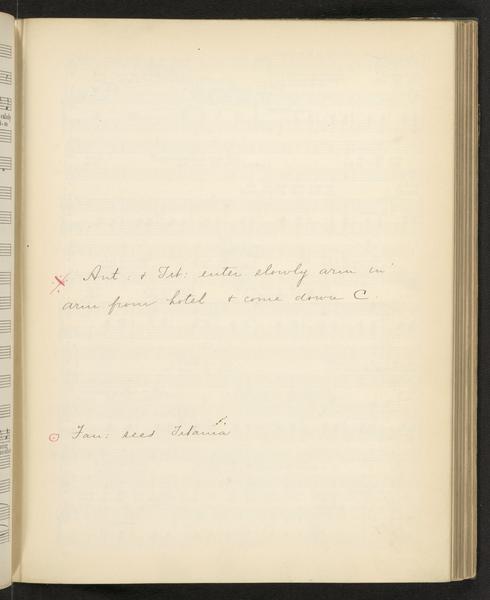 Ant: & Tit: enter slowly arm in
arm from hotel & come down C.
Fan: sees Titania